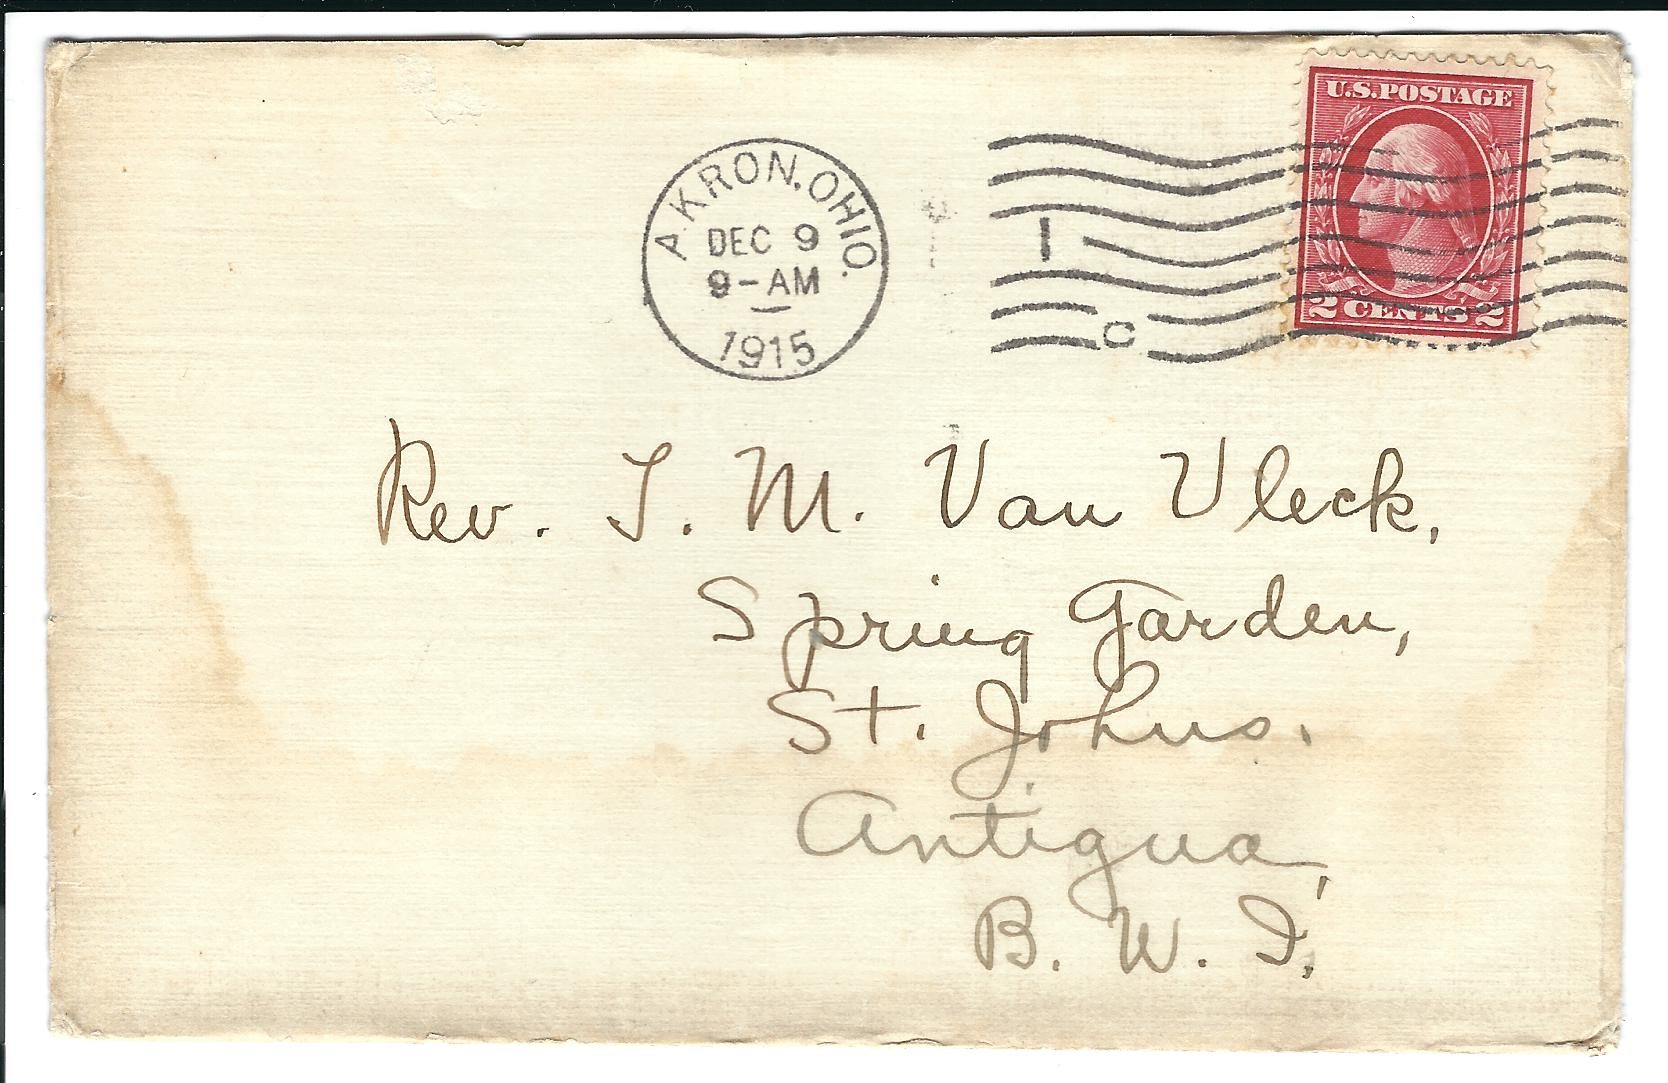 U.S. POSTAGE
2 CENTS 2
AKRON, OHIO.
DEC 9
9-AM
1915
1
C
Rev. T. M. Van Vleck,
Spring Garden,
St. Johns.
Antigua,
B. W. I.